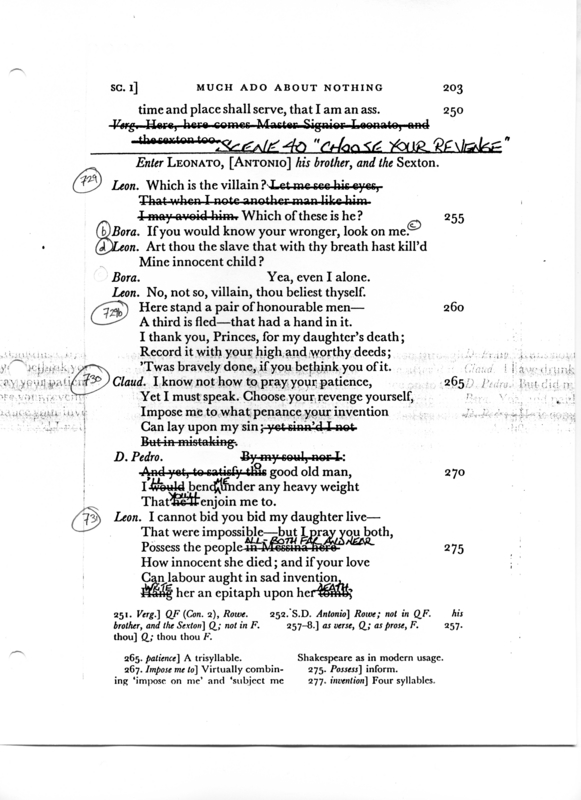 SC. I] MUCH ADO ABOUT NOTHING 203
time and place shall serve, that I am an ass. 250
Verg. Here, here comes Master Signior Leonato, and
the sexton too. SCENE 40 "CHOOSE YOUR REVENGE"
Enter LEONATO, [ANTONIO] his brother, and the Sexton.
729
Leon. Which is the villain? Let me see his eyes,
That when I note another man like him
I may avoid him. Which of these is he? 255
b Bora. If you would know your wronger, look on me. c
d Leon. Art thou the slave that with thy breath hast kill'd
Mine innocent child?
Bora. Yea, even I alone.
Leon. No, not so, villain, thou beliest thyself.
729b Here stand a pair of honourable men— 260
A third is fled—that had a hand in it.
I thank you, Princes, for my daughter's death;
Record it with your high and worthy deeds;
'Twas bravely done, if you bethink you of it.
730 Claud. I know not how to pray your patience, 265
Yet I must speak. Choose your revenge yourself,
Impose me to what penance your invention
Can lay upon my sin; yet sinn'd I not
But in mistaking.
D. Pedro. By my soul, nor I:
And yet, to satisfy this good old man, 270
I would bend ME under any heavy weight
YOU'LL
That he'll enjoin me to.
731 Leon. I cannot bid you bid my daughter live—
That were impossible—but I pray you both,
ALL - BOTH FAR AND NEAR
Possess the people in Messina here 275
How innocent she died; and if your love
Can labour aught in sad invention,
WRITE DEATH
Hang her an epitaph upon her tomb,
251. Verg.] QF (Con. 2), Rowe. 252. S.D. Antonio] Rowe; not in QF. his
brother, and the Sexton] Q; not in F. 257-8.] as verse, Q; as prose, F. 257.
thou] Q; thou thou F.
265. patience] A trisyllable.
267. Impose me to] Virtually combin-
ing 'impose on me' and 'subject me
Shakespeare as in modern usage.
275. Possess] inform.
277. invention] Four syllables.